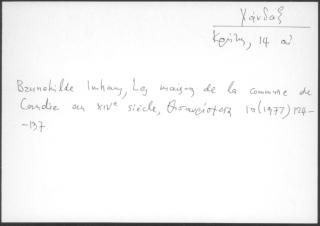 Χάνδαξ
Κρήτη, 14 αι
Brunehilde Imhaus, Les maisons de la commune de
Candie au XIVe siècle, Θησαυρίσματα 10(1973) 124-
-137